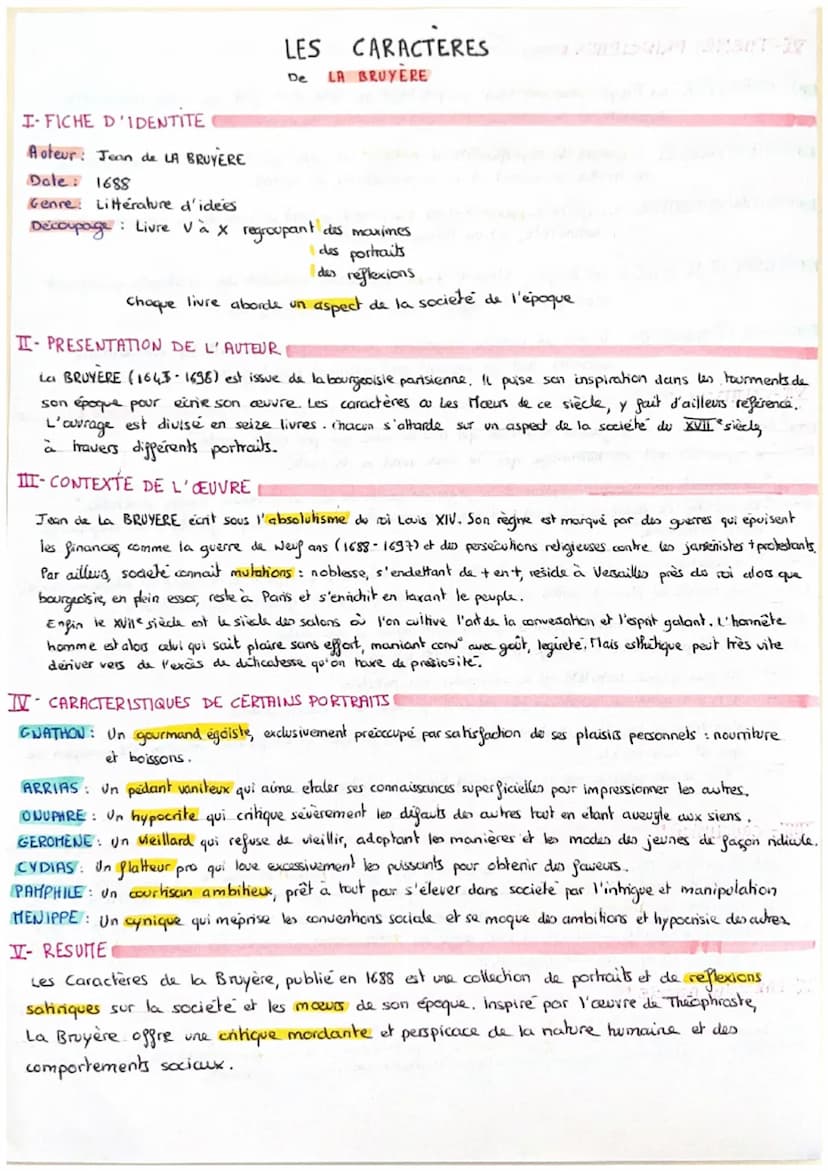 LES CARACTÈRES
De LA BRUYÈRE
I- FICHE D'IDENTITÉ
Auteur : Jean de LA BRUYÈRE
Date : 1688
Genre : Littérature d'idées
Découpage : Livre V à X regroupant des maximes
des portraits
des réflexions
Chaque livre aborde un aspect de la société de l'époque
II- PRESENTATION DE L'AUTEUR
La BRUYÈRE (1645-1696) est issue de la bourgeoisie parisienne. Il puise son inspiration dans les tourments de
son époque pour écrire son œuvre. Les caractères ou Les Mœurs de ce siècle, y fait d'ailleurs référence.
L'ouvrage est divisé en seize livres. Chacun s'attarde sur un aspect de la société du XVIIe siècle,
à travers différents portraits.
III- CONTEXTE DE L'ŒUVRE
Jean de La BRUYERE écrit sous l'absolutisme du roi Louis XIV. Son règne est marqué par des guerres qui épuisent
les finances, comme la guerre de Neuf ans (1688-1697) et des persécutions religieuses contre les jansénistes + protestants.
Par ailleurs, société connait mutations : noblesse, s'endettant de + en +, réside à Versailles près du roi alors que
bourgeoisie, en plein essor, reste à Paris et s'enrichit en taxant le peuple.
Enfin le XVIIe siècle est le siècle des salons où l'on cultive l'art de la conversation et l'esprit galant. L'honnête
homme est alors celui qui sait plaire sans effort, maniant conv° avec goût, légireté. Mais esthétique peut très vite
dériver vers de l'excès de délicatesse qu'on taxe de préciosité.
IV- CARACTERISTIQUES DE CERTAINS PORTRAITS
GNATHON : Un gourmand égoïste, exclusivement préoccupé par satisfaction de ses plaisirs personnels : nourriture
et boissons.
ARRIAS : Un pédant vaniteux qui aime étaler ses connaissances superficielles pour impressionner les autres.
ONUPHRE : Un hypocrite qui critique sévèrement les défauts des autres tout en étant aveugle aux siens.
GEROMENE : Un vieillard qui refuse de vieillir, adoptant les manières et les modes des jeunes de façon ridicule.
CYDIAS : Un flatteur pro qui loue excessivement les puissants pour obtenir des faveurs.
PAMPHILE : Un courtisan ambitieux, prêt à tout pour s'élever dans société par l'intrigue et manipulation
MENIPPE : Un cynique qui méprise les conventions sociale et se moque des ambitions et hypocrisie des autres
V- RESUME
Les Caractères de la Bruyère, publié en 1688 est une collection de portraits et de réflexions
satiriques sur la société et les mœurs de son époque. Inspiré par l'œuvre de Théophraste,
La Bruyère offre une critique mordante et perspicace de la nature humaine et des
comportements sociaux.